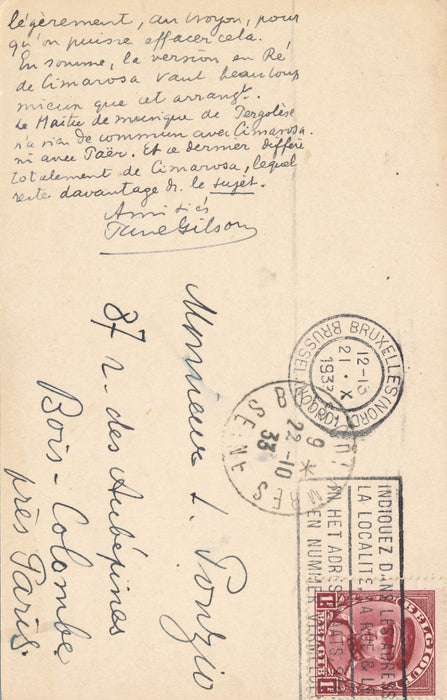 légèrement, au crayon, pour
qu'on puisse effacer cela.
En somme, la version en Ré
de Cimarosa vaut beaucoup
mieux que cet arrangt.
Le Maître de musique de Pergolèse
n'a rien de commun avec Cimarosa.
ni avec Paër. Et ce dernier diffère
totalement de Cimarosa, lequel
reste davantage ds. le sujet.
Amitiés
Paul Gilson
Monsieur L. Ponzio
37 r. des Aubépines
Bois-Colombes
près Paris.
BRUXELLES (NORD)
BRUSSEL (NOORD)
12-13
21 · X
193
9
22-10
33
SEINE
INDIQUEZ DANS LES ADRESSES
LA LOCALITÉ, LA RUE & L
IN HET ADRES
EN NUMMER VERMELD
BELGIQUE
BELGIE
1F 1F